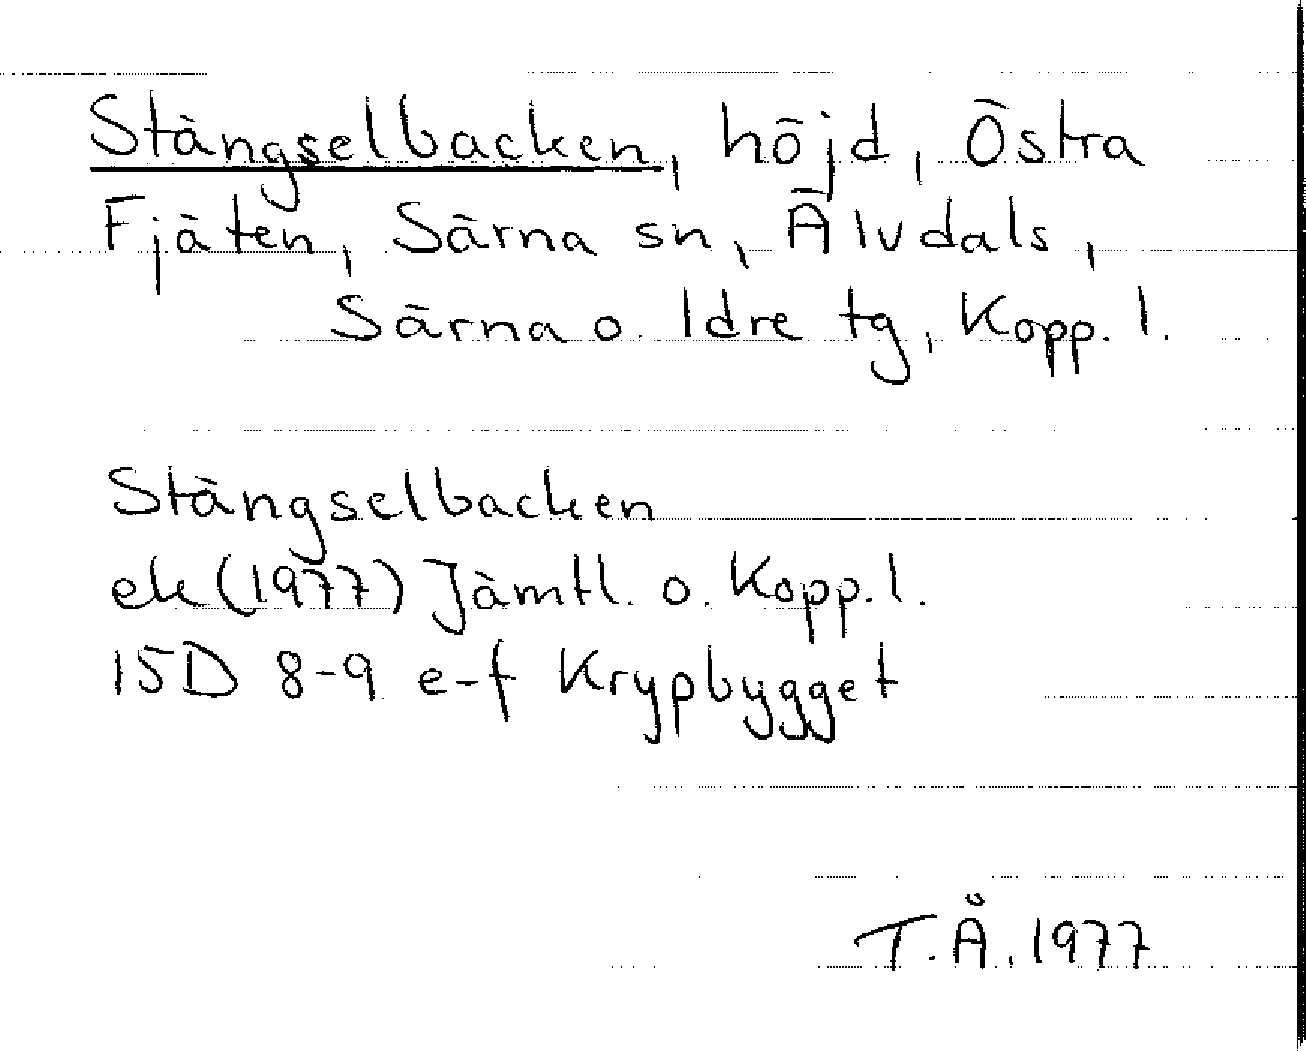 Stängselbacken, höjd, Östra
Fjäten, Särna sn, Älvdals,
Särna o. Idre tg, Kopp. l.
Stängselbacken
ek (1977) Jämtl. o. Kopp. l.
15D 8-9 e-f Krypbygget
T.Å. 1977